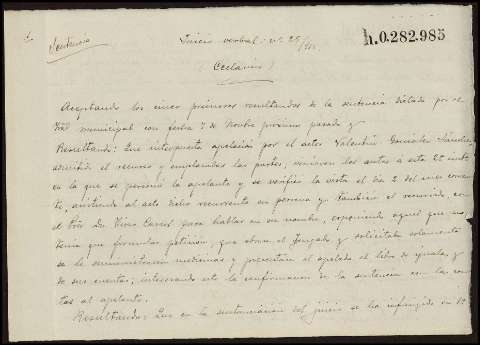 Sentencia
Juicio verbal nº 25/
h.0.282.985
(Ceclavín)
Aceptando los cinco primeros resultandos de la sentencia dictada por el
Tral municipal con fecha 7 de Novbre próximo pasado y
Resultando: Que interpuesta apelación por el actor Valentín González Sánchez,
admitido el recurso y emplazadas las partes, vinieron los autos a este
en la que se personó la apelante y se verificó la vista el día 2 del mes
asistiendo al acto dicho recurrente en persona y también el recurrido, con
el Dn para hablar en su nombre, exponiendo aquel que no
tenía que formular petición, que obrara el Juzgado y solicitaba solamente
se le suministrasen medicinas y presentara el apelado el libro de iguala, y
de sus cuentas; interesando este la confirmación de la sentencia con las cos-
tas al apelante.
Resultando: Que en la sustanciación del juicio se ha infringido